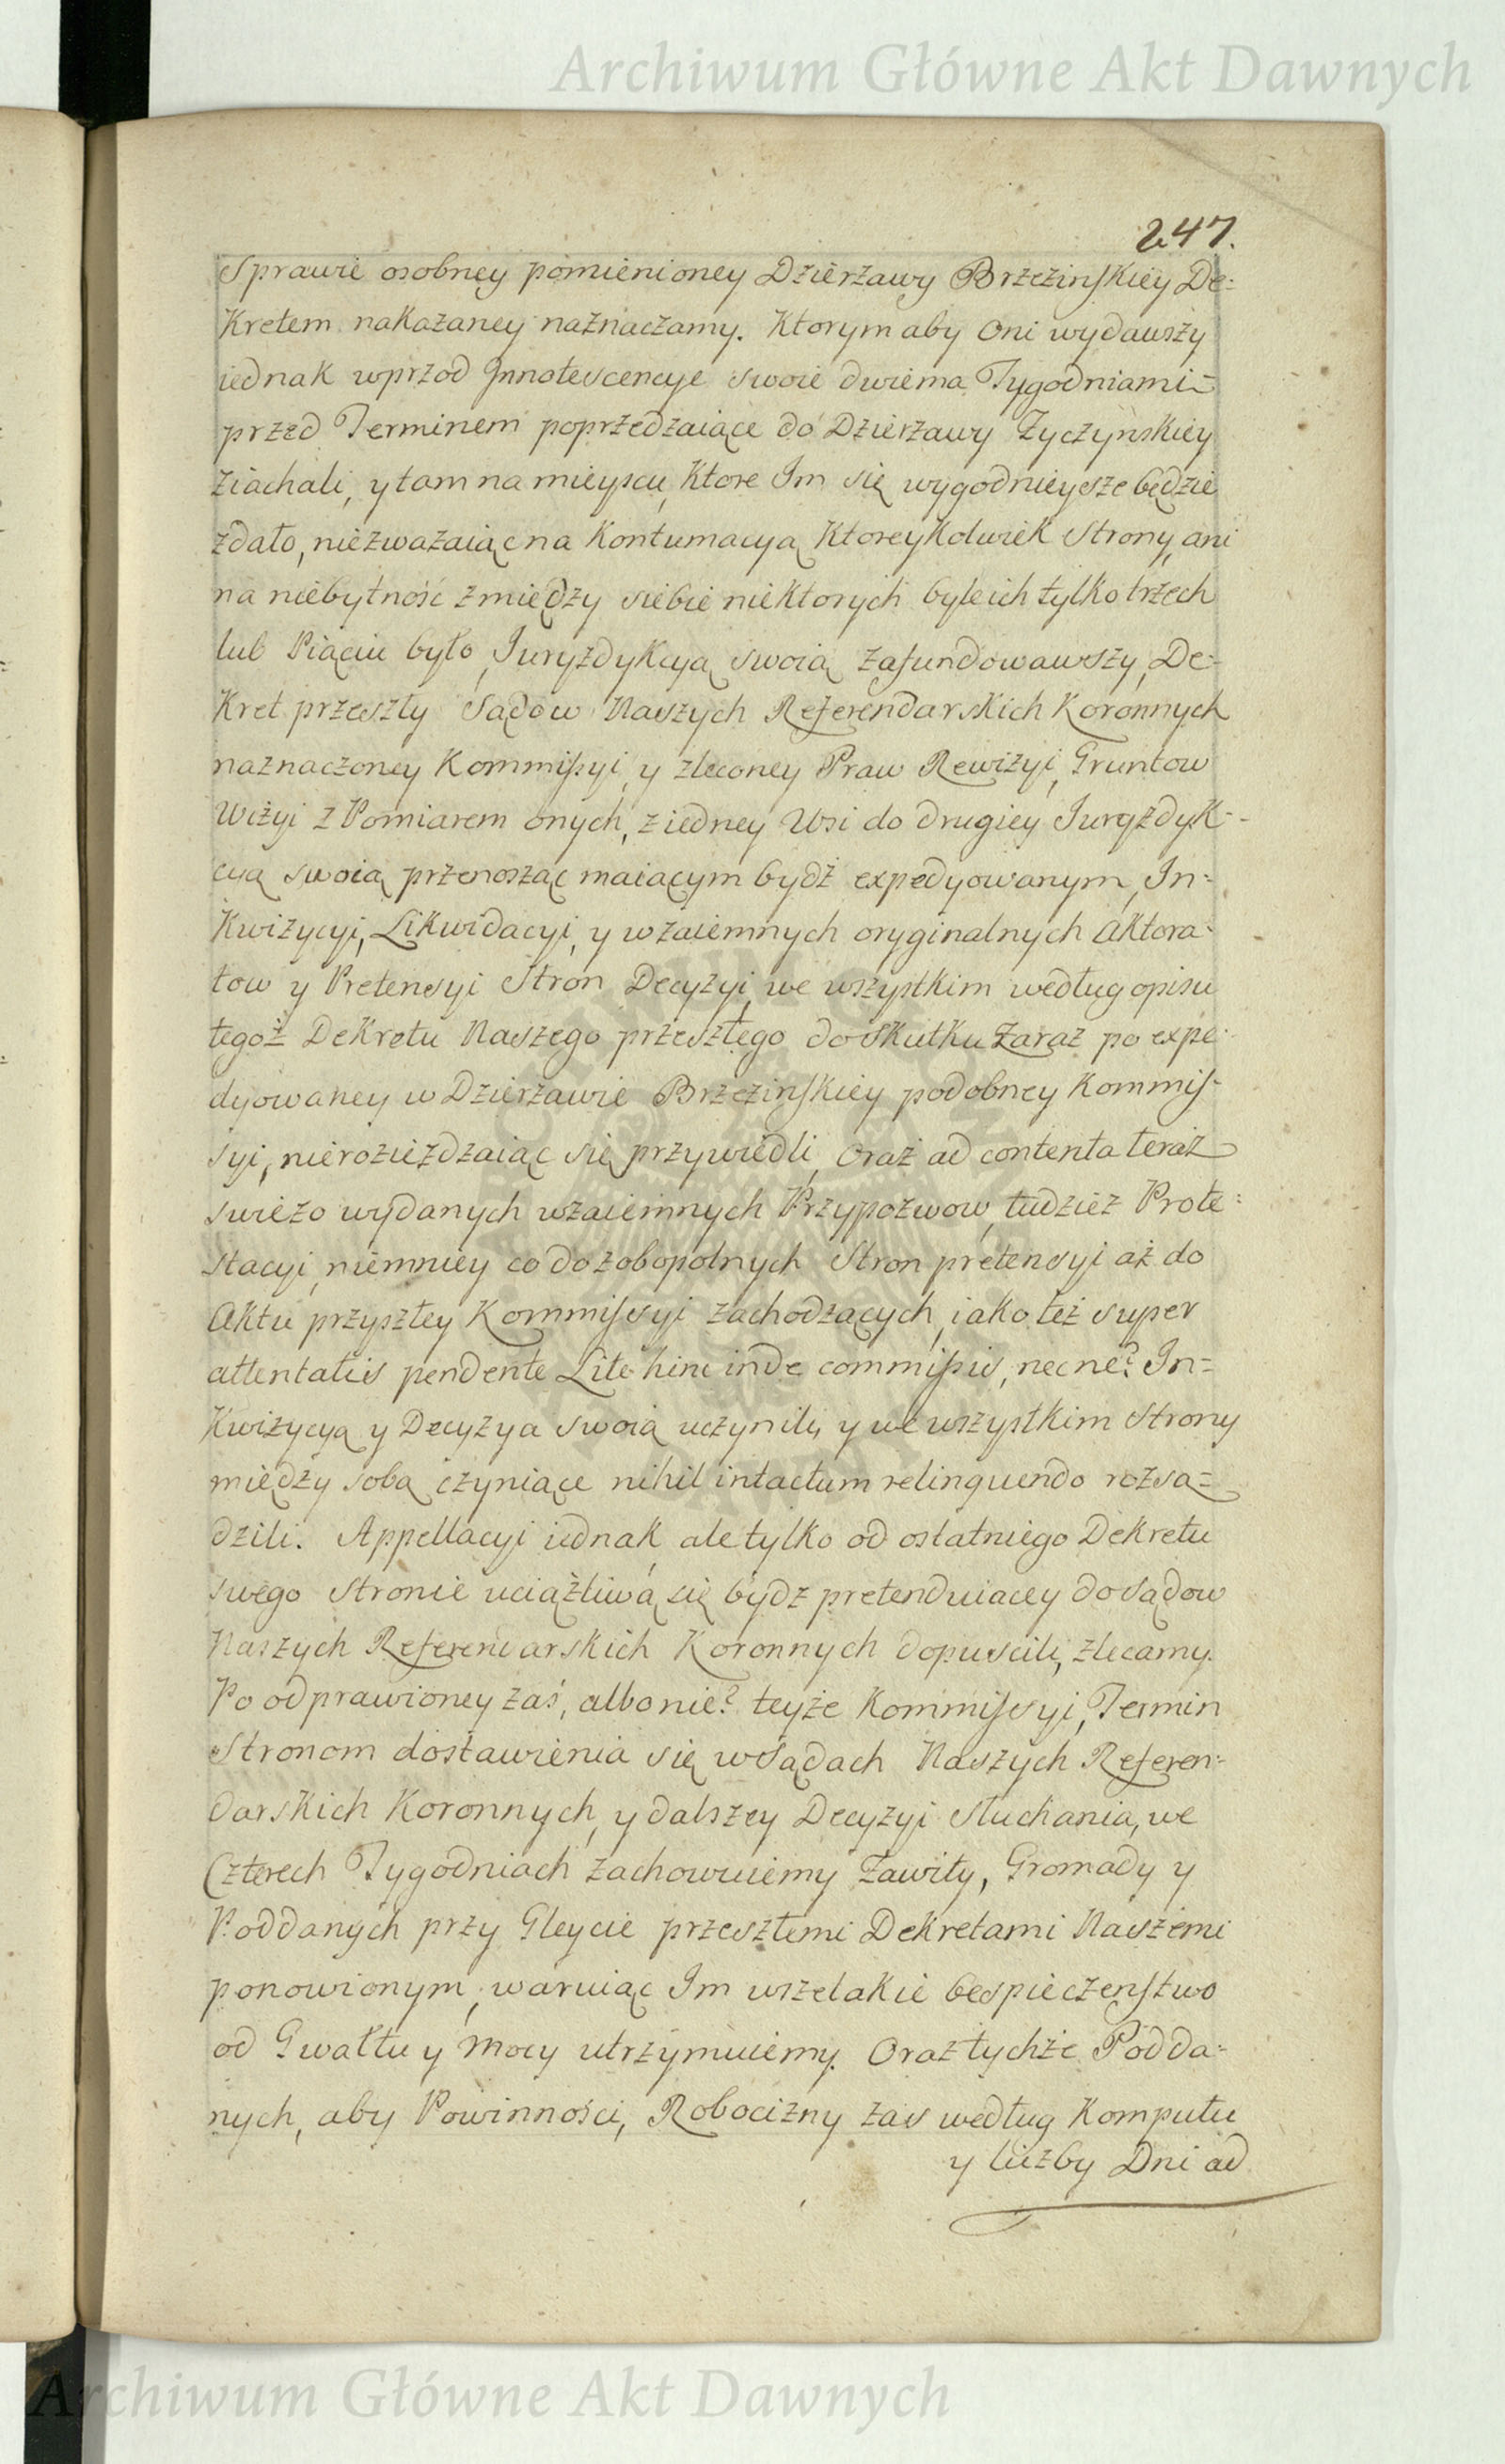 Archiwum Główne Akt Dawnych
247.
Sprawie osobney pomienioney Dzierzawy Brzezinskiey De=
Kretem nakazaney naznaczamy. Ktorym aby Oni wydawszy
iednak wprzod Innotescencye swoie dwiema Tygodniami=
przed Terminem poprzedzaiące do Dzierzawy Zyczynskiey
ziachali, y tam na mieyscu, Ktore Im się wygodnieysze będzie
zdało, niezwazaiąc na Kontumacyą Ktoreykolwiek Strony, ani
na niebytność zmiędzy siebie niektorych byle ich tylko trzech
lub Piąciu było, Juryzdykcyą swoią zafundowawszy, De=
Kret przeszły Sądow Naszych Referendarskich Koronnych
naznaczoney Kommissyi, y zleconey Praw Rewizyi, Gruntow
Wizyi z Pomiarem onych, z iedney Wsi do drugiey Juryzdyk=
cyą swoią przenosząc maiącym bydź expedyowanym, In=
Kwizycyi, Likwidacyi, y wzaiemnych oryginalnych Aktora=
tow y Pretensyi Stron Decyzyi, we wszystkim według opisu
tegoż Dekretu Naszego przeszłego do skutku zaraz po expe=
dyowaney w Dzierzawie Brzezinskiey podobney Kommis=
syi, nierozieżdzaiąc się przywiedli, oraz ad contenta teraz
swiezo wydanych wzaiemnych Przypozwow, tudziez Prote=
stacyi, niemniey co do zobopolnych Stron pretensyi aż do
Aktu przyszłey Kommissyi zachodzących, iako też super
attentatis pendente Lite hinc inde commissis, nec ne? In=
Kwizycyą y Decyzya swoią uczynili, y we wszystkim Strony
między sobą czyniące nihil intactum relinquendo rozsą=
dzili. Appellacyi iednak, ale tylko od ostatniego Dekretu
swego Stronie uciążliwą się bydz pretenduiacey do Sądow
Naszych Referendarskich Koronnych dopuscili, zlecamy.
Po odprawioney zaś, albo nie? teyże Kommissyi, Termin
Stronom dostawienia się w Sądach Naszych Referen=
darskich Koronnych, y dalszey Decyzyi słuchania, we
Czterech Tygodniach zachowuiemy zawity, Gromady y
Poddanych przy Gleycie przeszłemi Dekretami Naszemi
ponowionym, waruiąc Im wszelakie bespieczenstwo
od Gwałtu y Mocy utrzymuiemy. Oraz tychże Podda=
nych, aby Powinności, Robocizny zas według Komputu
y liczby Dni ad
Archiwum Główne Akt Dawnych